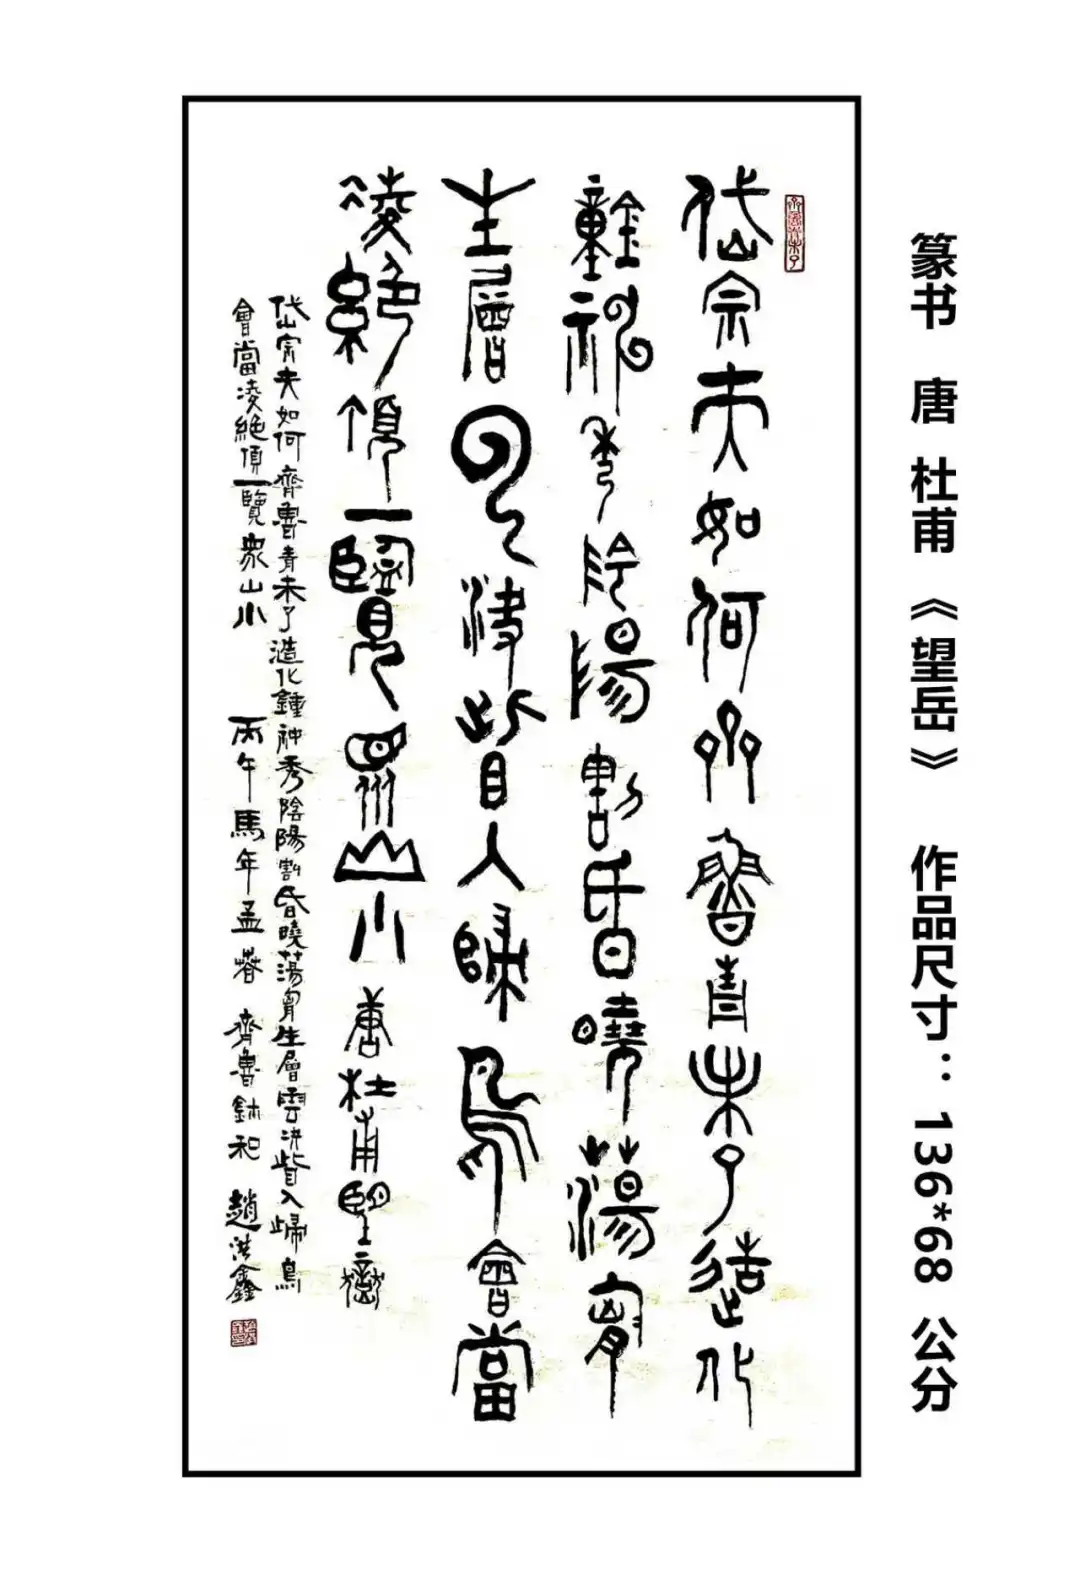 篆书 唐 杜甫 《望岳》 作品尺寸：136*68 公分
岱宗夫如何齊魯青未了造化
鍾神秀陰陽割昏曉蕩胷
生層雲決眥入歸鳥會當
凌絕頂一覽眾山小 唐杜甫望嶽
岱宗夫如何齊魯青未了造化鍾神秀陰陽割昏曉蕩胷生層雲决眥入歸鳥
會當凌絕頂一覽眾山小 丙午馬年孟春 齊魯 趙洪鑫